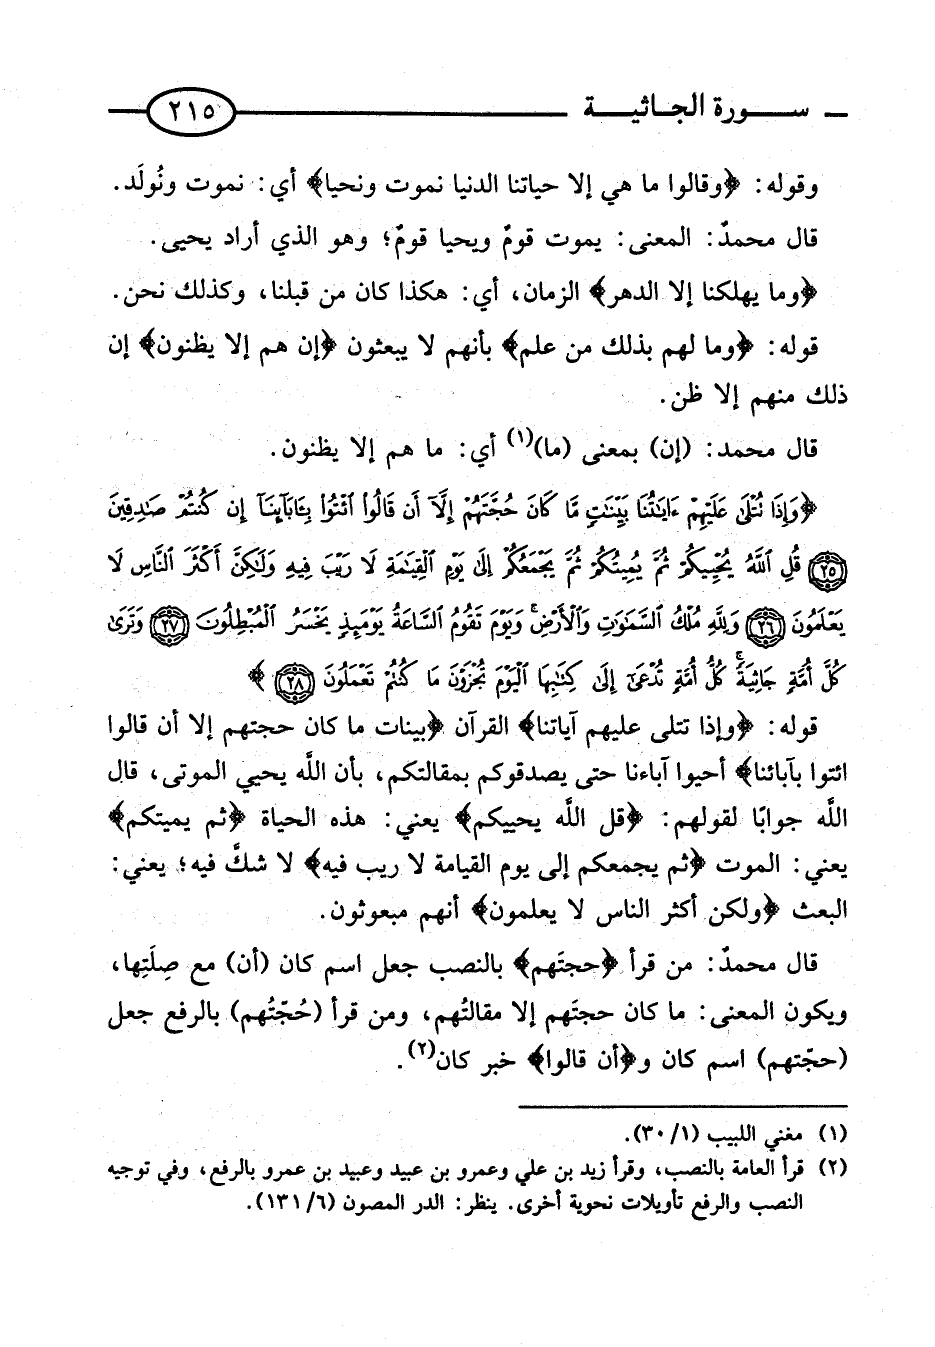 سورة الجاثية ٢١٥
وقوله: ﴿وقالوا ما هي إلا حياتنا الدنيا نموت ونحيا﴾ أي: نموت ونُولَد.
قال محمدٌ: المعنى: يموت قومٌ ويحيا قومٌ؛ وهو الذي أراد يحيى.
﴿وما يهلكنا إلا الدهر﴾ الزمان، أي: هكذا كان من قبلنا، وكذلك نحن.
قوله: ﴿وما لهم بذلك من علم﴾ بأنهم لا يبعثون ﴿إن هم إلا يظنون﴾ إن
ذلك منهم إلا ظن.
قال محمد: (إن) بمعنى (ما)(١) أي: ما هم إلا يظنون.
﴿وَإِذَا تُتْلَىٰ عَلَيْهِمْ ءَايَٰتُنَا بَيِّنَٰتٍ مَّا كَانَ حُجَّتَهُمْ إِلَّآ أَن قَالُوا۟ ٱئْتُوا۟ بِـَٔابَآئِنَآ إِن كُنتُمْ صَٰدِقِينَ
٢٥ قُلِ ٱللَّهُ يُحْيِيكُمْ ثُمَّ يُمِيتُكُمْ ثُمَّ يَجْمَعُكُمْ إِلَىٰ يَوْمِ ٱلْقِيَٰمَةِ لَا رَيْبَ فِيهِ وَلَٰكِنَّ أَكْثَرَ ٱلنَّاسِ لَا
يَعْلَمُونَ ٢٦ وَلِلَّهِ مُلْكُ ٱلسَّمَٰوَٰتِ وَٱلْأَرْضِ ۚ وَيَوْمَ تَقُومُ ٱلسَّاعَةُ يَوْمَئِذٍ يَخْسَرُ ٱلْمُبْطِلُونَ ٢٧ وَتَرَىٰ
كُلَّ أُمَّةٍ جَاثِيَةً ۚ كُلُّ أُمَّةٍ تُدْعَىٰٓ إِلَىٰ كِتَٰبِهَا ٱلْيَوْمَ تُجْزَوْنَ مَا كُنتُمْ تَعْمَلُونَ ٢٨ ﴾
قوله: ﴿وإذا تتلى عليهم آياتنا﴾ القرآن ﴿بينات ما كان حجتهم إلا أن قالوا
ائتوا بآبائنا﴾ أحيوا آباءنا حتى يصدقوكم بمقالتكم، بأن اللَّه يحيي الموتى، قال
اللَّه جوابًا لقولهم: ﴿قل اللَّه يحييكم﴾ يعني: هذه الحياة ﴿ثم يميتكم﴾
يعني: الموت ﴿ثم يجمعكم إلى يوم القيامة لا ريب فيه﴾ لا شكَّ فيه؛ يعني:
البعث ﴿ولكن أكثر الناس لا يعلمون﴾ أنهم مبعوثون.
قال محمدٌ: من قرأ ﴿حجتَهم﴾ بالنصب جعل اسم كان (أن) مع صِلَتِها،
ويكون المعنى: ما كان حجتَهم إلا مقالتُهم، ومن قرأ (حُجّتُهم) بالرفع جعل
(حجّتهم) اسم كان و﴿أن قالوا﴾ خبر كان(٢).
(١) مغني اللبيب (٣٠/١).
(٢) قرأ العامة بالنصب، وقرأ زيد بن علي وعمرو بن عبيد وعبيد بن عمرو بالرفع، وفي توجيه
النصب والرفع تأويلات نحوية أخرى. ينظر: الدر المصون (١٣١/٦).